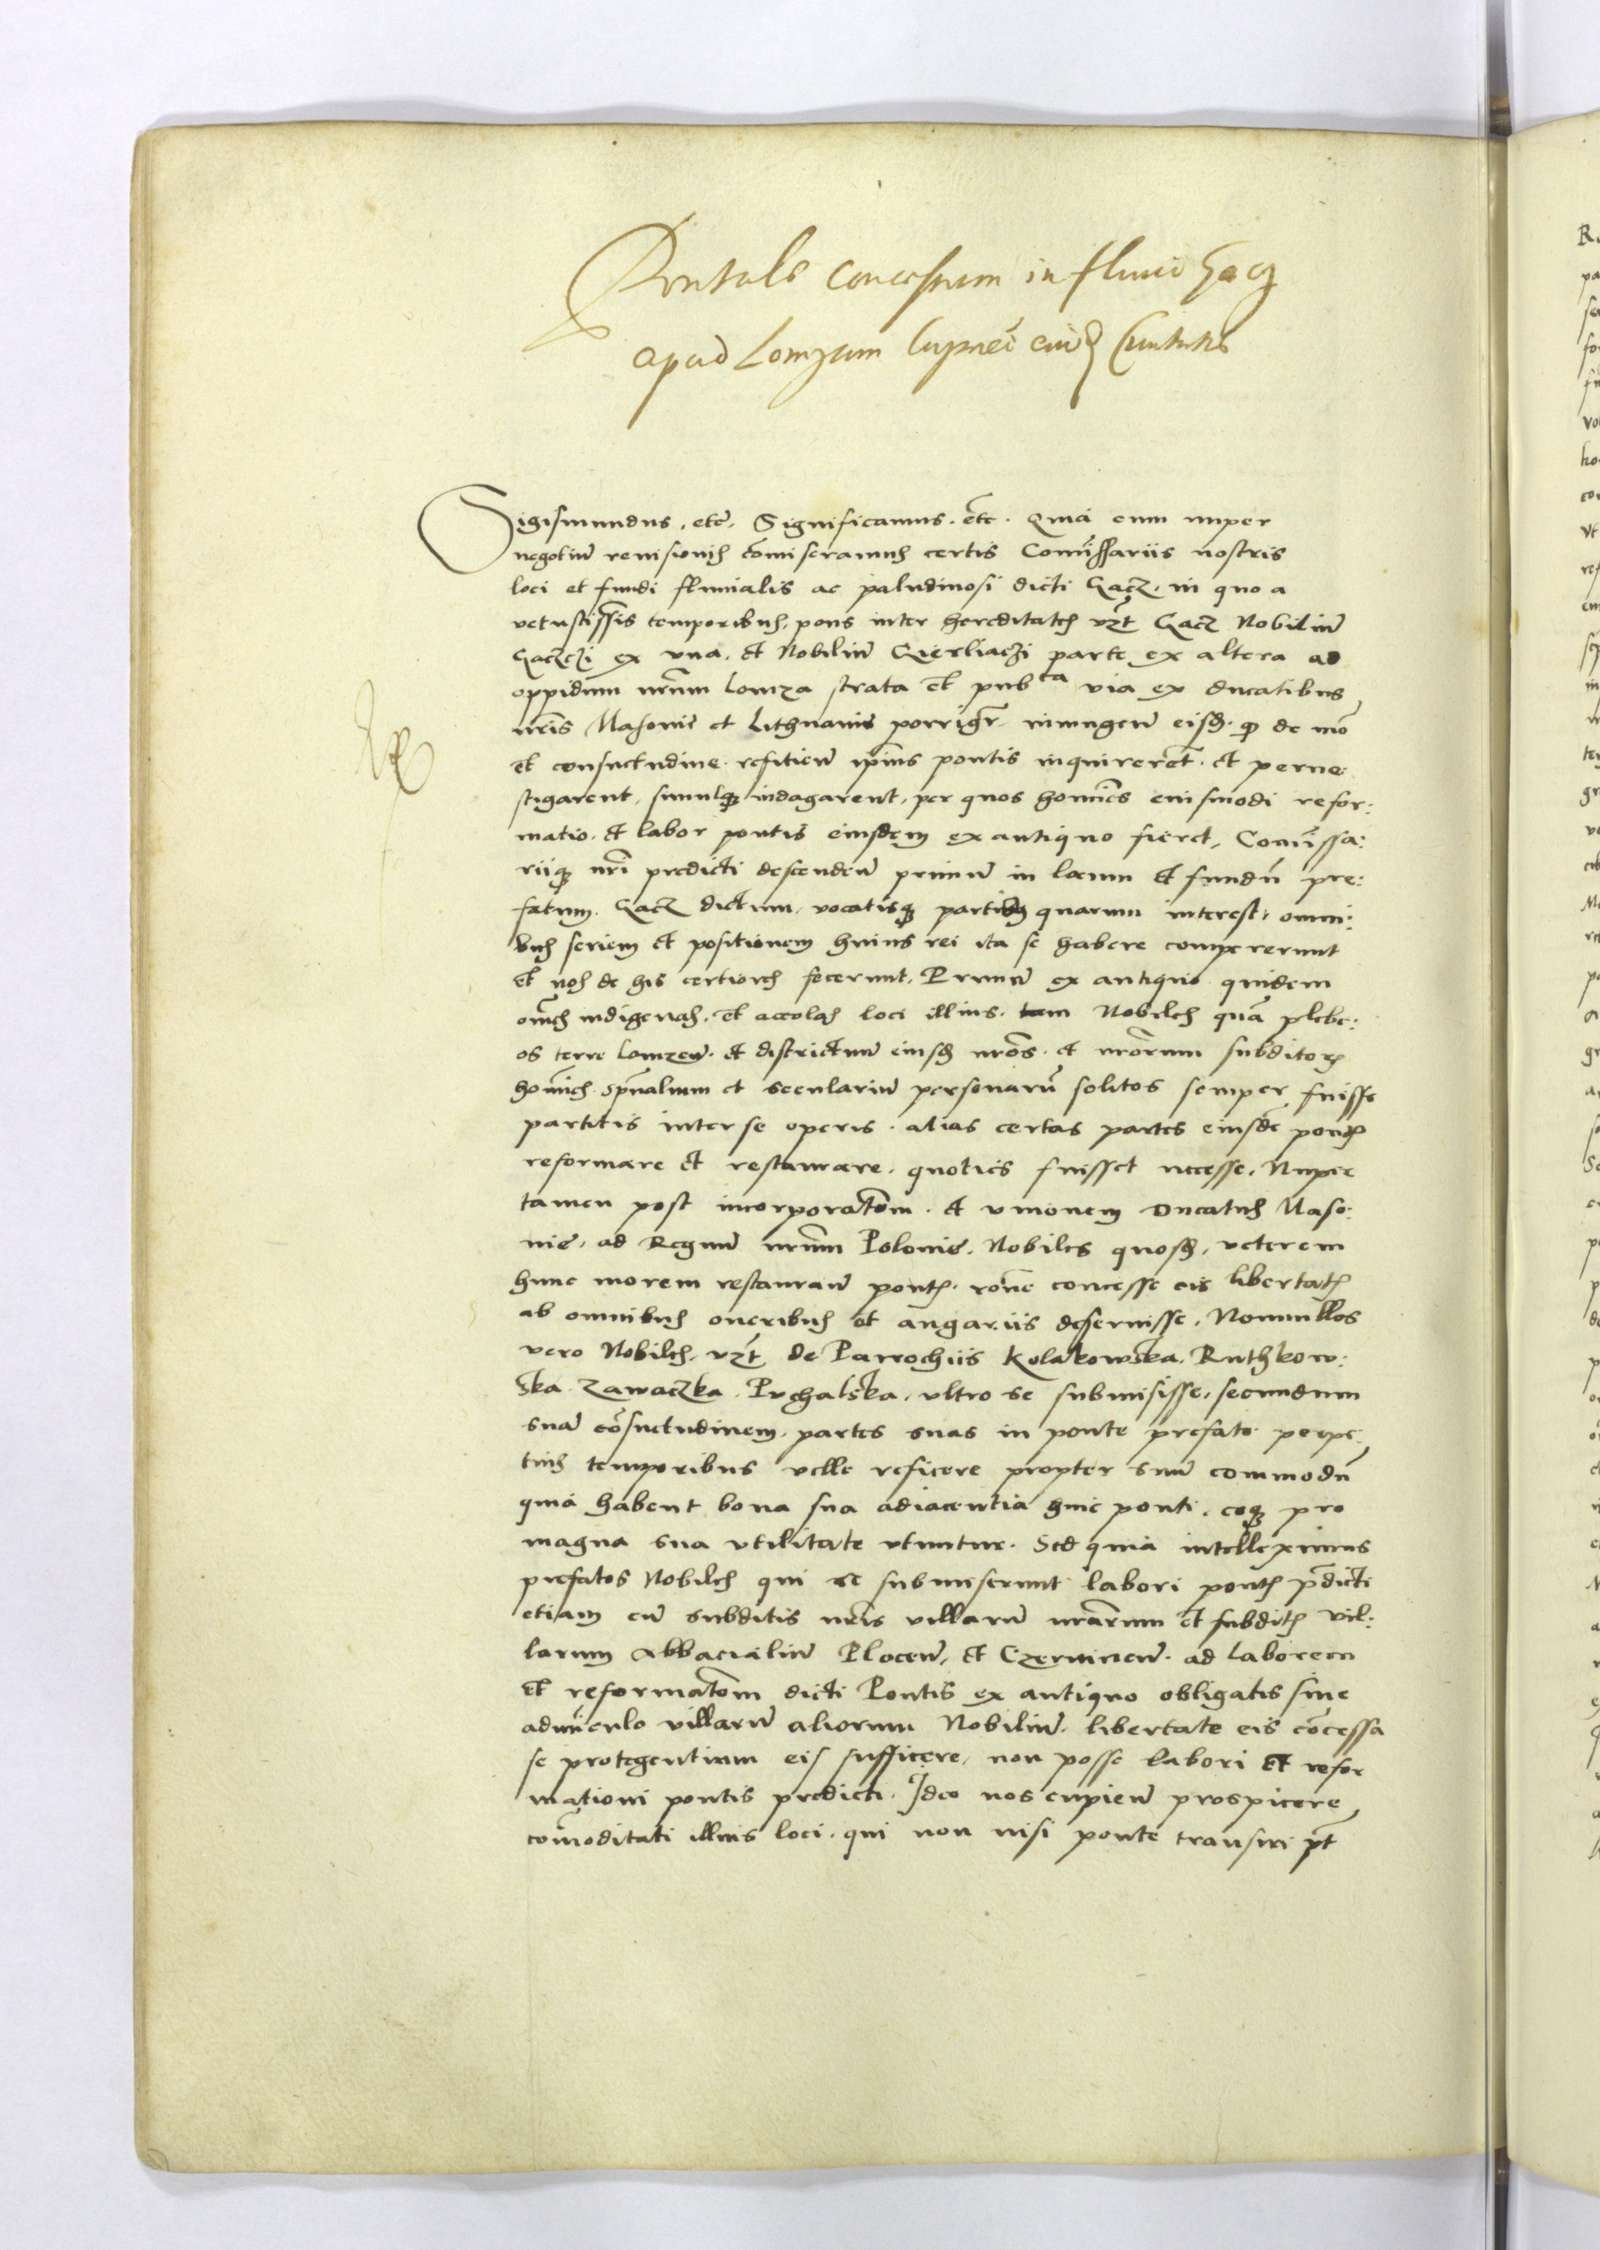 Pontale concessum in fluvio Gacz
apud Lomzam eiusd Civitatis
Sigismundus, etc, Significamus. etc. Quia cum nuper
negotium revisionis comiseramus certis Comissariis nostris
loci et fundi fluvialis ac paludinosi dicti Gacz. in quo a
vetustissis temporibus, pons inter hereditates vzt Gacz Nobilium
Gaczczi ex una, et Nobilium Gierliaczi parte ex altera ad
oppidum nrum Lomza strata et pubca via ex ducatibus
nris Masovie et Lithuanie porrigr. niungen eisd. q de mo
et consuetudine. refitien ipius pontis inquirerent. et perve
stigarent, simulq indagarent, per quos homines eiusmodi refor:
matio. et labor pontis eiusdem ex antiquo fieret, Comissa:
riiq nri predicti descenden primum in locum et fundu pre:
fatum. Gacz dictum, vocatisq partibus quarum interest, omni:
bus seriem et positionem huius rei ita se habere compererunt
et nos de his certiores fecerunt, Primum ex antiquo quidem
omes indigenas, et accolas loci illius. tam Nobiles qua plebe:
os terre Lomzen. et districtuum eiusd nros. et nrorum subditor
homies spualium et secularium personaru solitos semper fuisse
partitis inter se operis. alias certas partes eiusde pontis
reformare et restaurare, quoties fuisset necesse, Nuper
tamen post incorporatoem. et unionem Ducatus Maso:
vie, ad Regnum nrum Polonie, Nobiles quosd, veterem
hunc morem restauran pontis. rone concesse eis libertatis
ab omnibus oneribus et angariis deseruisse, Nonnullos
vero Nobiles, vzt de Parrochiis Kolakowska, Ruthkow:
ska Zawaczka, Puchalska, ultro se submisisse, secundum
suam cosuetudinem, partes suas in ponte prefato perpe
tuis temporibus velle reficere propter suum commodu
quia habent bona sua adiacentia huic ponti, eoq pro
magna sua utilitate utuntur. Sed quia intelleximus
prefatos Nobiles qui se submiserunt labori pontis pdicti
etiam cum subditis nris villarum nrarum et subditis vil:
larum Abbacialium Plocen, et Czerwinen. ad laborem
et reformatoem dicti Pontis ex antiquo obligatis sine
adminiculo villarum aliorum Nobilium, libertate eis cocessa
se protegentium eis sufficere, non posse labori et refor
mationi pontis predicti. Ideo nos cupien prospicere
comoditati illius loci, qui non nisi ponte transiri pt